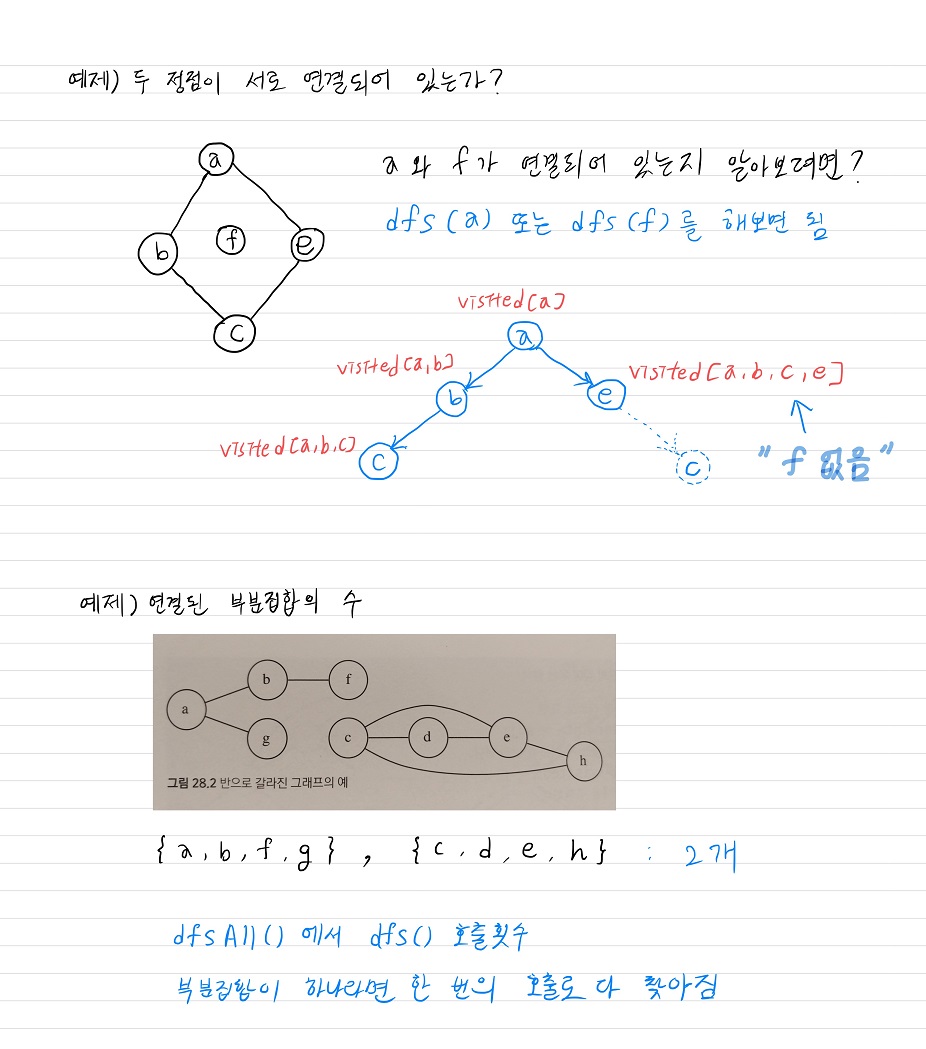 예제) 두 정점이 서로 연결되어 있는가?
a
b
f
e
c
a와 f가 연결되어 있는지 알아보려면?
dfs(a) 또는 dfs(f)를 해보면 됨
visited[a]
a
visited[a,b]
b
e
visited[a,b,c,e]
visited[a,b,c]
c
c
"f 없음"
예제) 연결된 부분집합의 수
b
f
a
g
c
d
e
h
그림 28.2 반으로 갈라진 그래프의 예
{a, b, f, g}, {c, d, e, h} : 2개
dfsAll()에서 dfs() 호출횟수
부분집합이 하나라면 한 번의 호출로 다 찾아짐